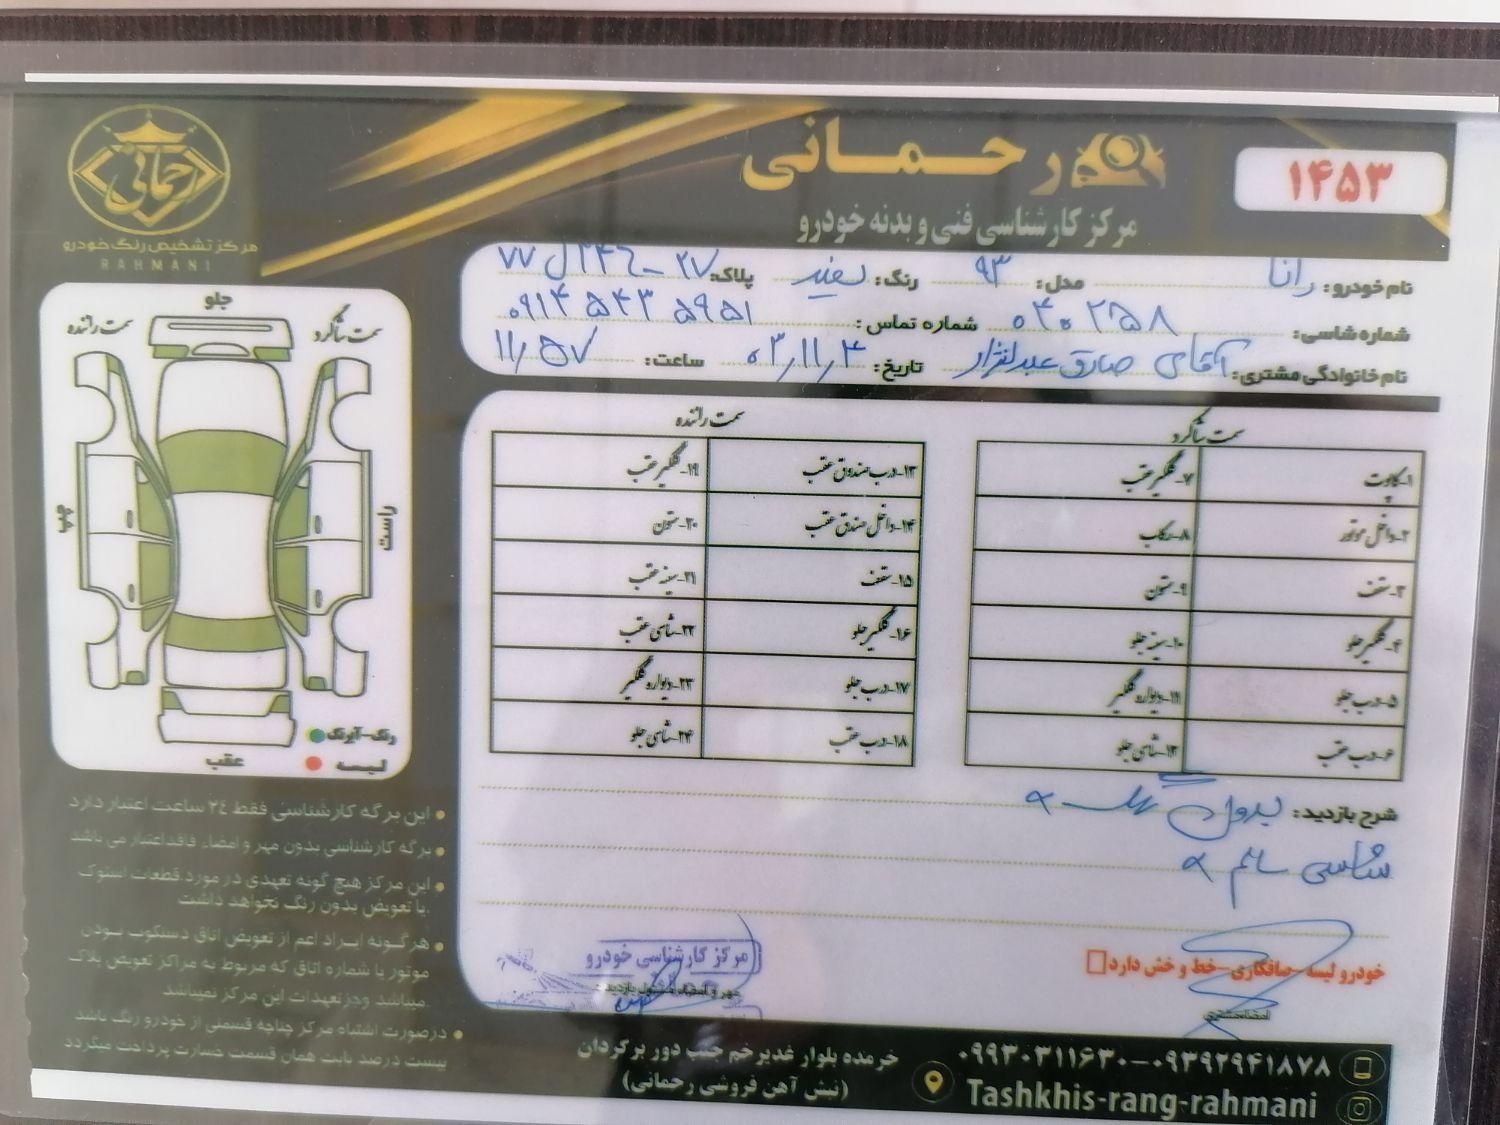 رحمانی
۱۴۵۳
مرکز کارشناسی فنی و بدنه خودرو
رحمانی
مرکز تشخیص رنگ خودرو
RAHMANI
نام خودرو: رانا مدل: ۹۳ رنگ: سفید پلاک: ۷۷ ل ۲۴۶ - ۲۷
شماره شاسی: ۰۴۰۲۵۸ شماره تماس: ۰۹۱۴ ۵۴۳ ۵۹۵۱
نام خانوادگی مشتری: آقای صادق تاریخ: ۰۳,۱۱,۴ ساعت: ۱۱,۵۷
جلو
سمت شاگرد
سمت راننده
راست
چپ
عقب
رنگ-آبرنگ
لیسه
سمت شاگرد
۱-کاپوت ۷-گلگیر عقب
۲-داخل موتور ۸-رکاب
۳-سقف ۹-ستون
۴-گلگیر جلو ۱۰-سینه جلو
۵-درب جلو ۱۱-دیواره گلگیر
۶-درب عقب ۱۲-شاسی جلو
سمت راننده
۱۳-درب صندوق عقب ۱۹-گلگیر عقب
۱۴-داخل صندق عقب ۲۰-ستون
۱۵-سقف ۲۱-سینه عقب
۱۶-گلگیر جلو ۲۲-شاسی عقب
۱۷-درب جلو ۲۳-دیواره گلگیر
۱۸-درب عقب ۲۴-شاسی جلو
شرح بازدید: بدون رنگ
شاسی سالم
خودرو لیسه-صافکاری-خط و خش دارد
امضاء مشتری
مرکز کارشناسی خودرو
مهر و امضاء مسئول بازدید:
این برگه کارشناسی فقط ۲٤ ساعت اعتبار دارد
برگه کارشناسی بدون مهر و امضاء فاقد اعتبار می باشد
این مرکز هیچ گونه تعهدی در مورد قطعات استوک
یا تعویض بدون رنگ نخواهد داشت.
هرگونه ایراد اعم از تعویض اتاق دستکوب بودن
موتور یا شماره اتاق که مربوط به مراکز تعویض پلاک
میباشد وجزتعهدات این مرکز نمیباشد.
درصورت اشتباه مرکز چنانچه قسمتی از خودرو رنگ باشد
بیست درصد بابت همان قسمت خسارت پرداخت میگردد
۰۹۹۳۰۳۱۱۶۳۰-۰۹۳۹۲۹۴۱۸۷۸
Tashkhis-rang-rahmani
خرمده بلوار غدیرخم جنب دور برگردان
(نبش آهن فروشی رحمانی)